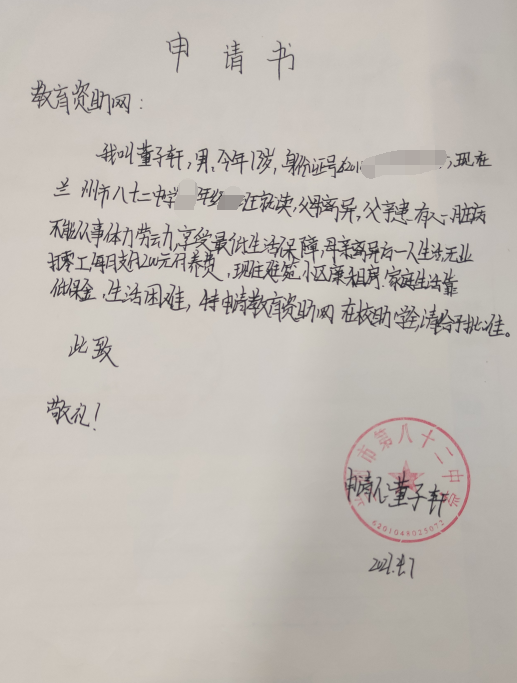 申请书
教育资助网：
我叫董子轩，男，今年13岁，身份证号6201，现在
兰州市八十二中学年级在就读，父母离异，父亲患有心脏病
不能从事体力劳动，享受最低生活保障，母亲离异后一人生活，无业
打零工，每月支付200元付养费，现住建筑小区廉租房，家庭生活靠
低保金，生活困难，特申请教育资助网在校助学金，请给予批准。
此致
敬礼！
市第八十二中学
申请人：董子轩
6201048025072